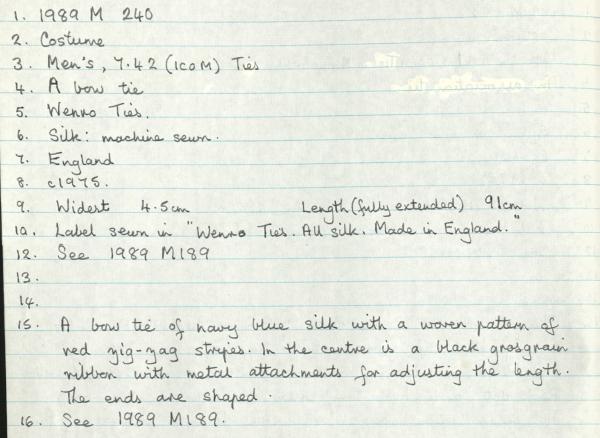 1. 1989 M 240
2. Costume
3. Men's, 7.42 (ICOM) Ties
4. A bow tie
5. Wenro Ties.
6. Silk: machine sewn.
7. England
8. c1975.
9. Widest 4.5cm Length (fully extended) 91cm
10. Label sewn in "Wenro Ties. All silk. Made in England."
12. See 1989 M189
13.
14.
15. A bow tie of navy blue silk with a woven pattern of
red zig-zag stripes. In the centre is a black grosgrain
ribbon with metal attachments for adjusting the length.
The ends are shaped.
16. See 1989 M189.